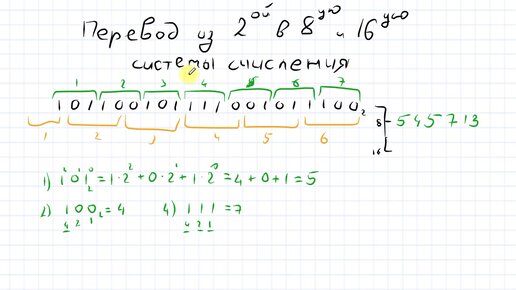 Перевод из 2ой в 8ую и 16ую
системы счисления
1 2 3 4 5 6 7
101100101111001011100₂
8 - 545713
1 2 3 4 5 6
16
1) 1²0¹1⁰₂ = 1·2² + 0·2¹ + 1·2⁰ = 4 + 0 + 1 = 5
2) 100₂ = 4 4) 111 = 7
4 2 1 4 2 1